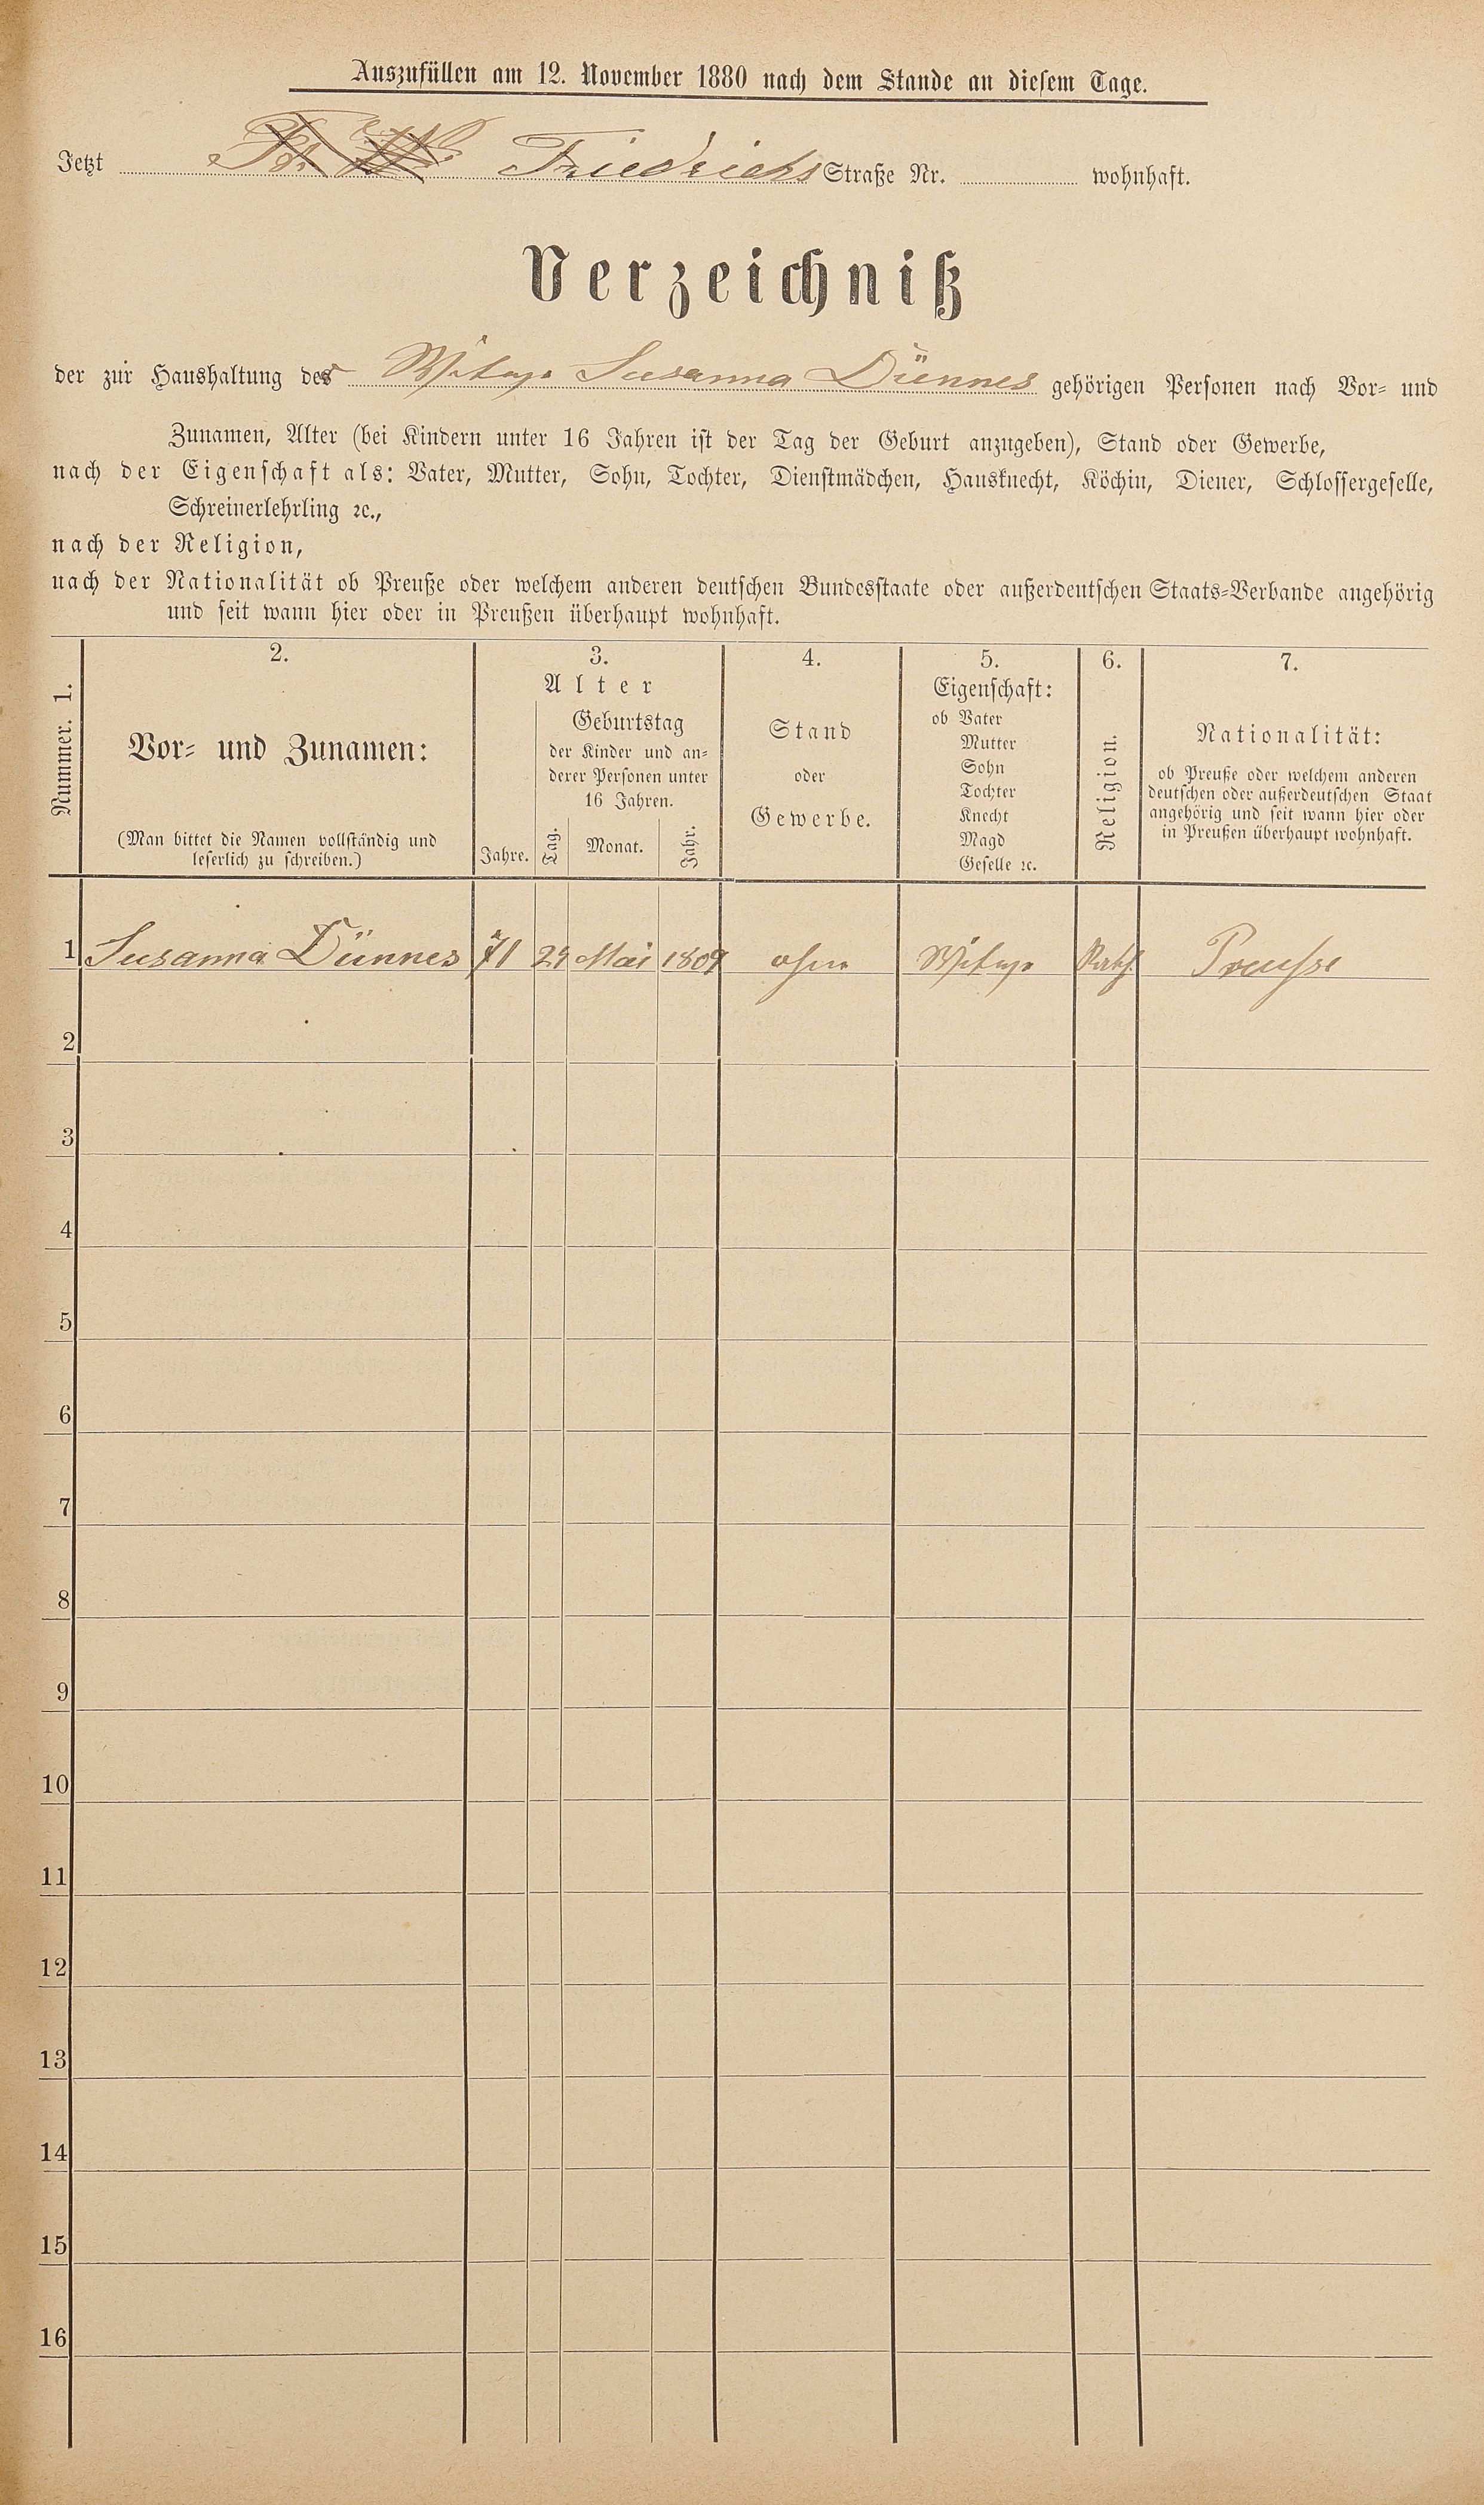 Auszufüllen am 12. November 1880 nach dem Stande an diesem Tage.
Jetzt Friedrichs Straße Nr. wohnhaft.
Verzeichniß
der zur Haushaltung der Witwe Susanna Dünnes gehörigen Personen nach Vor- und
Zunamen, Alter (bei Kindern unter 16 Jahren ist der Tag der Geburt anzugeben), Stand oder Gewerbe,
nach der Eigenschaft als: Vater, Mutter, Sohn, Tochter, Dienstmädchen, Hausknecht, Köchin, Diener, Schlossergeselle,
Schreinerlehrling ꝛc.,
nach der Religion,
nach der Nationalität ob Preuße oder welchem anderen deutschen Bundesstaate oder außerdeutschen Staats-Verbande angehörig
und seit wann hier oder in Preußen überhaupt wohnhaft.
Nummer. 1.
2.
Vor- und Zunamen:
(Man bittet die Namen vollständig und
leserlich zu schreiben.)
3.
Alter
Jahre.
Geburtstag
der Kinder und an-
derer Personen unter
16 Jahren.
Tag. Monat. Jahr.
4.
Stand
oder
Gewerbe.
5.
Eigenschaft:
ob Vater
Mutter
Sohn
Tochter
Knecht
Magd
Geselle ꝛc.
6.
Religion.
7.
Nationalität:
ob Preuße oder welchem anderen
deutschen oder außerdeutschen Staat
angehörig und seit wann hier oder
in Preußen überhaupt wohnhaft.
1 Susanna Dünnes 71 29 Mai 1809 ohne Witwe Kath. Preusse
2
3
4
5
6
7
8
9
10
11
12
13
14
15
16